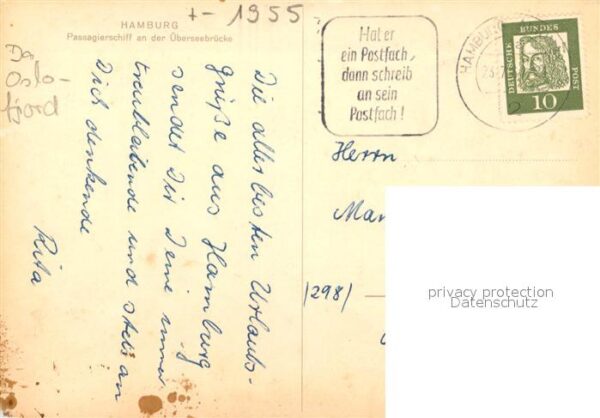 HAMBURG
Passagierschiff an der Überseebrücke
+- 1955
Da
Oslo-
fjord
Die allerbesten Urlaubs-
grüße aus Hamburg
sendet Dir Deine immer
treubleibende und stets an
Dich denkende
Rita
Hat er
ein Postfach,
dann schreib
an sein
Postfach!
HAMBURG
23.7
2
DEUTSCHE BUNDES POST
10
Herrn
Man
/298/
privacy protection
Datenschutz